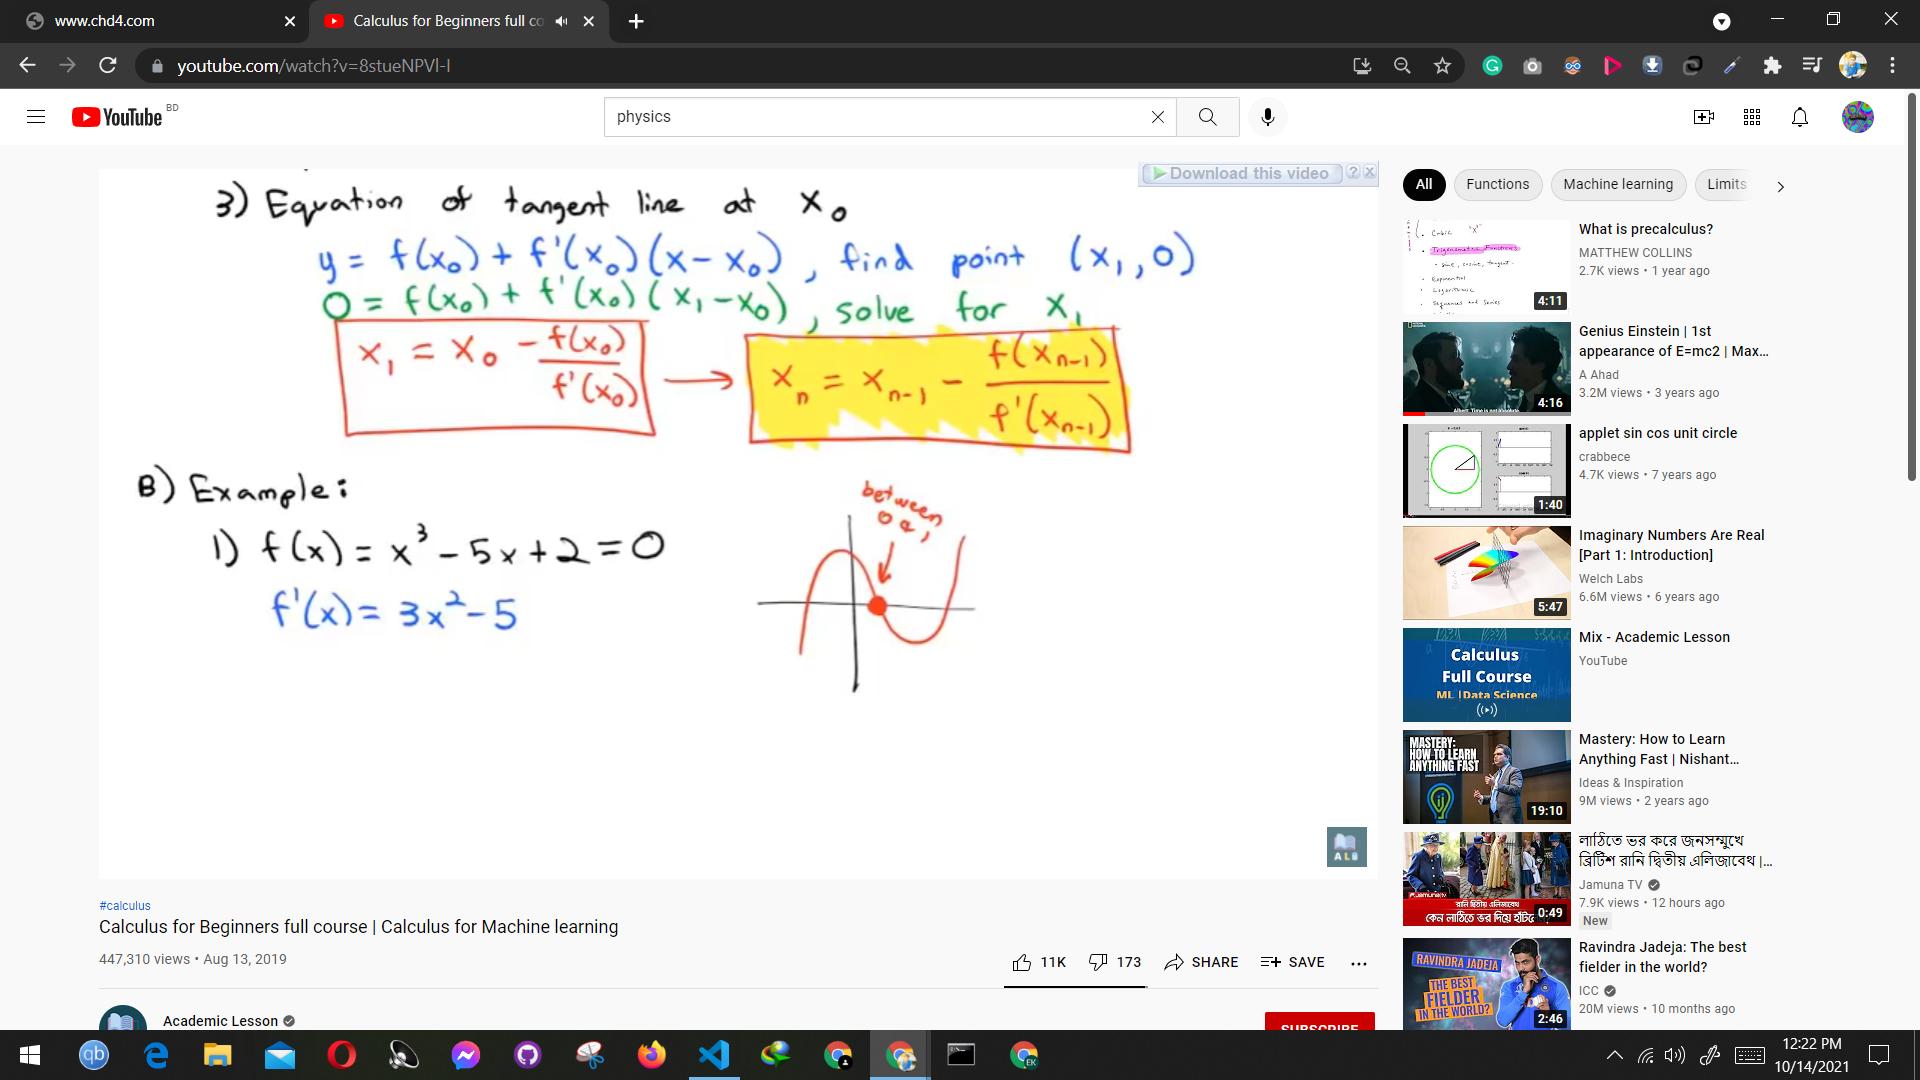 www.chd4.com
Calculus for Beginners full co
youtube.com/watch?v=8stueNPVl-I
YouTube BD
physics
Download this video
3) Equation of tangent line at x₀
y = f(x₀) + f'(x₀)(x-x₀), find point (x₁,0)
0 = f(x₀) + f'(x₀)(x₁-x₀), solve for x₁
x₁ = x₀ - f(x₀)/f'(x₀) → xₙ = xₙ₋₁ - f(xₙ₋₁)/f'(xₙ₋₁)
B) Example:
1) f(x) = x³ - 5x + 2 = 0
f'(x) = 3x² - 5
between
0 & 1
ALB
#calculus
Calculus for Beginners full course | Calculus for Machine learning
447,310 views • Aug 13, 2019
11K 173 SHARE SAVE
Academic Lesson
SUBSCRIBE
All Functions Machine learning Limits
Cubic "x³"
Trigonometric Functions
- sine, cosine, tangent -
Exponential
Logarithmic
Sequences and Series
4:11
What is precalculus?
MATTHEW COLLINS
2.7K views • 1 year ago
Albert: Time is not absolute
4:16
Genius Einstein | 1st
appearance of E=mc2 | Max...
A Ahad
3.2M views • 3 years ago
1:40
applet sin cos unit circle
crabbece
4.7K views • 7 years ago
5:47
Imaginary Numbers Are Real
[Part 1: Introduction]
Welch Labs
6.6M views • 6 years ago
Calculus
Full Course
ML |Data Science
Mix - Academic Lesson
YouTube
MASTERY:
HOW TO LEARN
ANYTHING FAST
19:10
Mastery: How to Learn
Anything Fast | Nishant...
Ideas & Inspiration
9M views • 2 years ago
JamunaTV
রানি দ্বিতীয় এলিজাবেথ
কেন লাঠিতে ভর দিয়ে
0:49
লাঠিতে ভর করে জনসম্মুখে
ব্রিটিশ রানি দ্বিতীয় এলিজাবেথ |...
Jamuna TV
7.9K views • 12 hours ago
New
RAVINDRA JADEJA:
THE BEST
FIELDER
IN THE WORLD?
2:46
Ravindra Jadeja: The best
fielder in the world?
ICC
20M views • 10 months ago
qb
EK
12:22 PM
10/14/2021